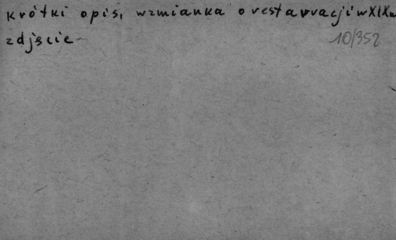 krótki opis, wzmianka o restauracji w XIX w
zdjęcie
10/352